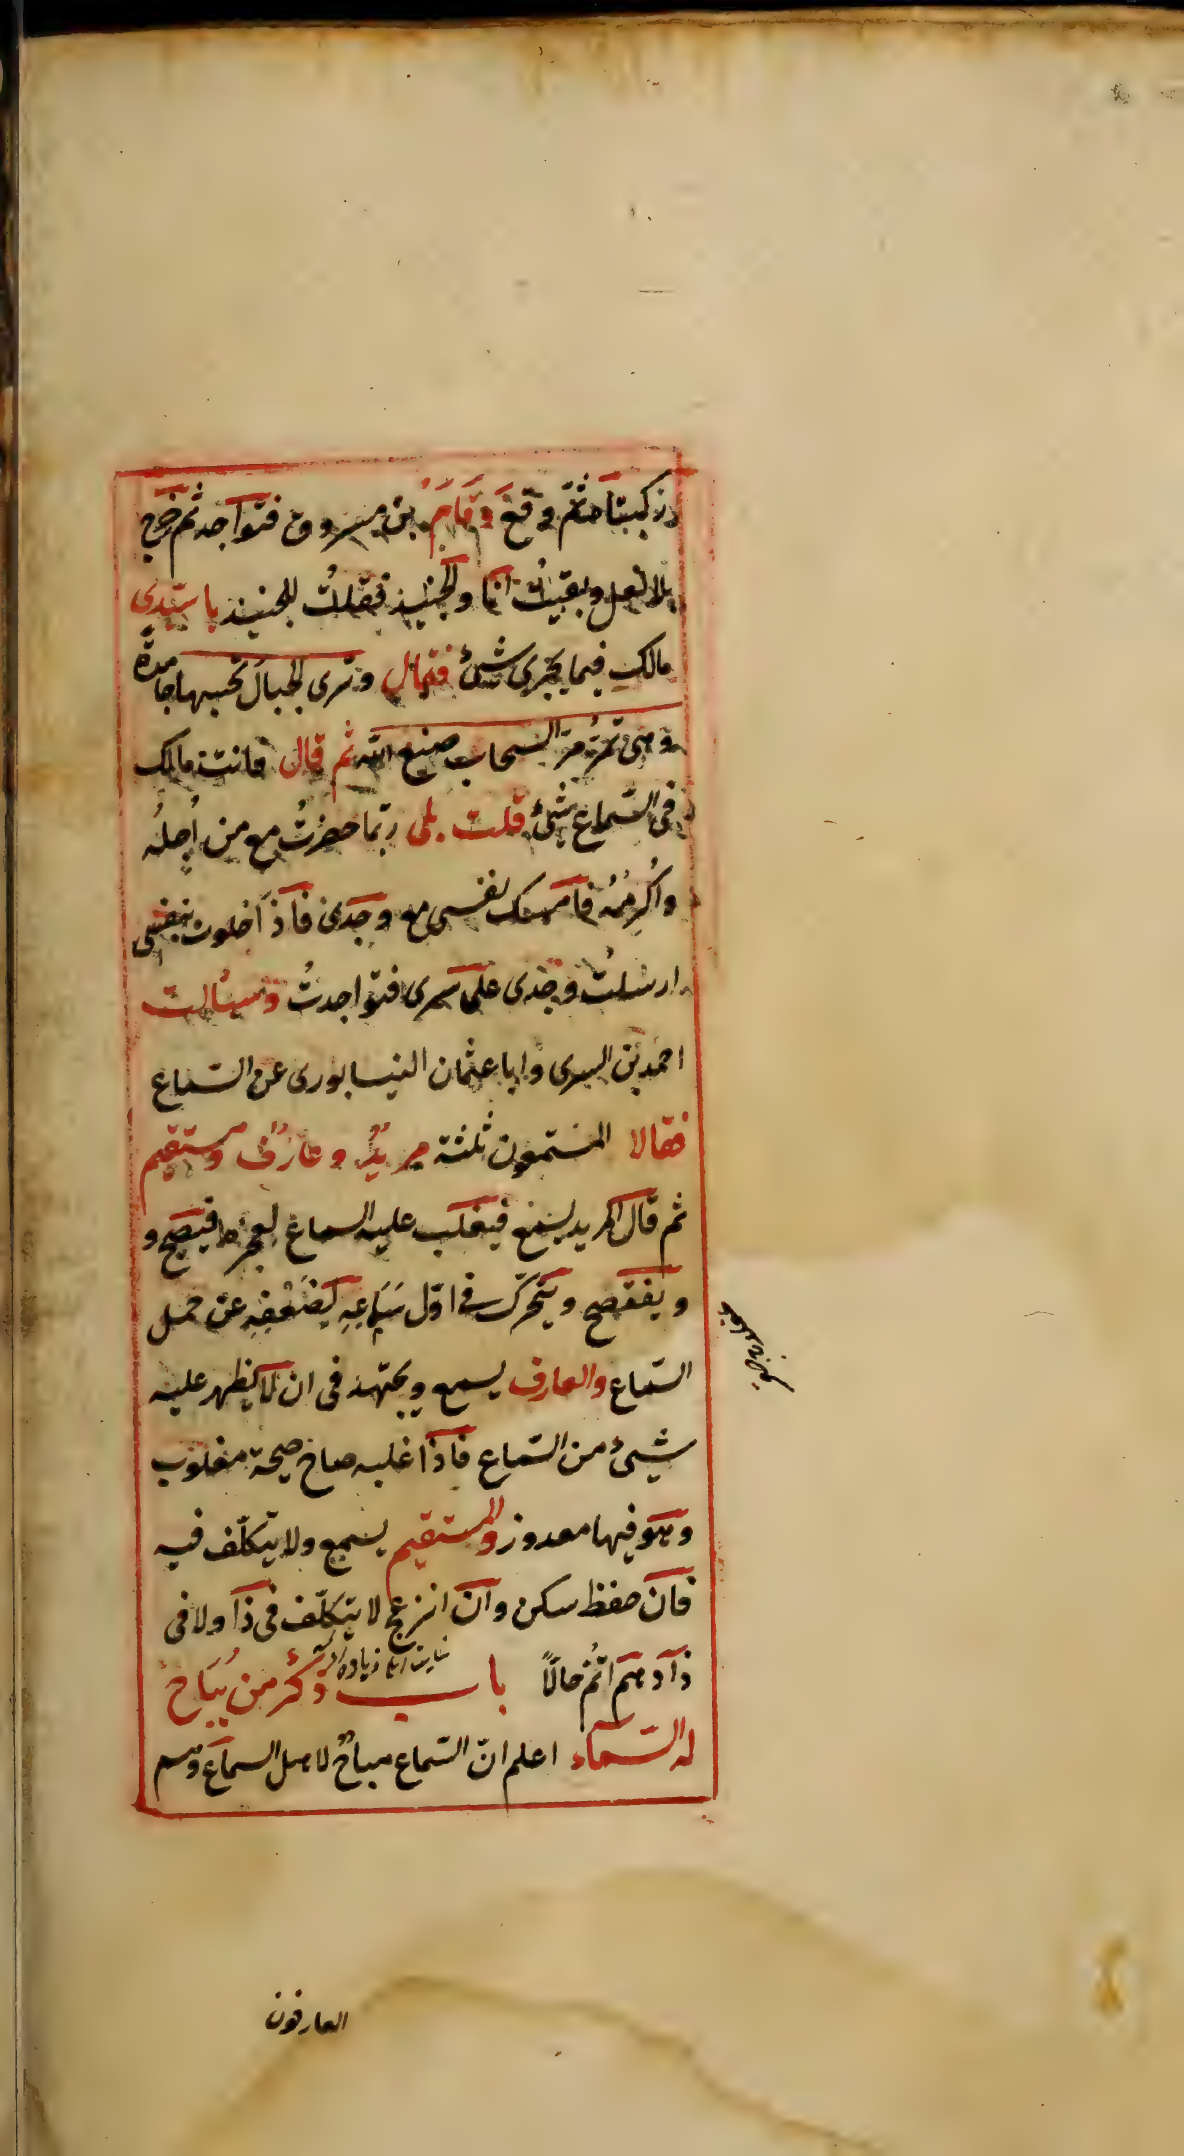 ركبتاه ثمّ وقع وقام بن مسروق فتواجد ثم خرج
بلا نعل وبقيتُ انا والجنيد فقلتُ للجنيد يا سيّدي
مالك فيما يجرى شئ فقال وترى الجبال تحسبها جامدة
وهى تمرّ مرّ السحاب صنع الله ثم قال فانت مالك
فى السّماع شئ قلت بلى ربّما حضرتُ مع من اُجلّه
واُكرِمُه فامسك نفسى مع وجدى فاذا خلوت بنفسى
ارسلتُ وجدى على سرى فتواجدتُ وسالت
احمد بن السرى وابا عثمان النيسابورى عن السّماع
فقالا المستمعون ثلثة مريدٌ وعارفٌ ومستقيم
ثم قال المريد يسمع فيغلب عليه السماع لعجزه فيصيح و
ويفقصح ويتحرّك فى اوّل سَمَاعِهِ لِضَعْفِهِ عن حمل
السّماع والعارف يسمع ويجتهد فى ان لا يظهر عليه
شيئ من السّماع فاذا غلبه صاح صيحة مغلوب
وهو فيها معذور والمستقيم يسمع ولا يتكلّف فيه
فان حفظ سكن وان انزعج لا يتكلّف فى ذا ولا فى
ذا وهم اتمّ حالاً باب ذكر من يُبَاحُ
له السّماع اعلم انّ السّماع مباحٌ لاهل السماع وهم
العارفون